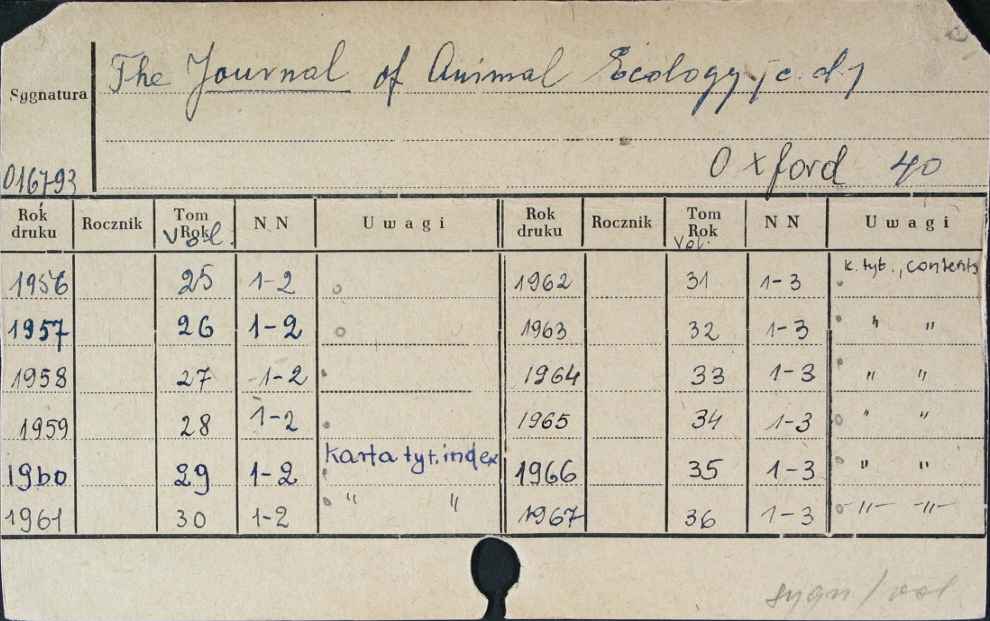 The Journal of Animal Ecology, (c. d.)
Sygnatura
Oxford 40
016793
Rok druku Rocznik Tom Rok Vol. N N Uwagi Rok druku Rocznik Tom Rok Vol. N N Uwagi
1956 25 1-2 1962 31 1-3 k. tyt., contents
1957 26 1-2 1963 32 1-3 " "
1958 27 1-2 1964 33 1-3 " "
1959 28 1-2 1965 34 1-3 " "
1960 29 1-2 Karta tyt. index 1966 35 1-3 " "
1961 30 1-2 " " 1967 36 1-3 -"- -"-
sygn/vol